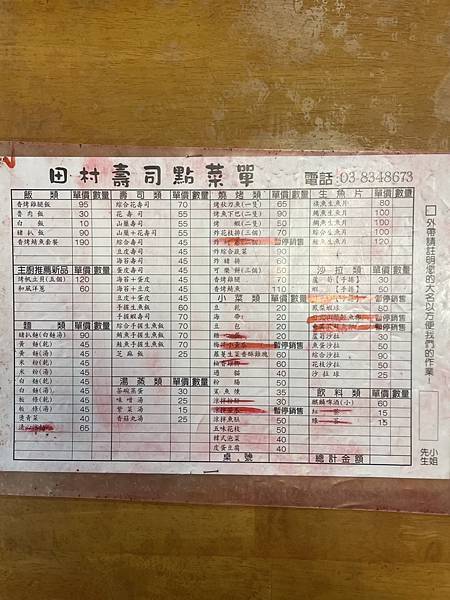 田村壽司點菜單 電話:03 8348673
飯類 單價 數量
香烤雞腿飯 95
魯肉飯 30
白飯 10
豬扒飯 90
香烤鯖魚套餐 190
主廚推薦新品 單價 數量
烤帆立貝(五個) 120
和風洋蔥 60
麵類 單價 數量
豬扒麵(白麵湯) 90
黃麵(乾) 45
黃麵(湯) 45
米粉(乾) 45
米粉(湯) 45
白麵(乾) 45
白麵(湯) 45
板條(乾) 45
板條(湯) 45
燙青菜 40
65
壽司類 單價 數量
綜合花壽司 70
花壽司 55
山藥壽司 55
山藥+花壽司 55
綜合壽司 45
豆皮壽司 45
海苔壽司 45
蛋皮壽司 45
海苔+蛋皮 45
海苔+豆皮 45
豆皮+蛋皮 45
手握壽司 60
手握蝦壽司 70
綜合手握生魚飯 70
鮪魚手握生魚飯 70
鮭魚手握生魚飯 70
芝麻飯 25
湯蒸類 單價 數量
茶碗蒸蛋 30
味噌湯 25
紫菜湯 15
香菇丸湯 25
燒烤類 單價 數量
烤秋刀魚(一隻) 65
烤魚下巴(二隻) 90
烤蝦(二隻) 50
炸花枝排(三個) 60
暫停銷售
炸綜合蔬菜 60
炸豬排 60
可樂餅(二個) 50
香烤雞腿 65
香烤鯖魚 110
小菜類 單價 數量
豆乾 20
海帶 20
豆包 20
暫停銷售
35
40
過貓 40
粉腸 40
鯊魚煙 30
40
暫停銷售
涼拌魚肚 40
五味花枝 50
韓式泡菜 40
皮蛋豆腐 40
桌號
生魚片 單價 數量
旗魚生魚片 80
鮪魚生魚片 100
鯛魚生魚片 100
綜合生魚片 100
鮭魚生魚片 100
沙拉類 單價 數量
蘆筍【手捲】 30
蝦【手捲】 50
暫停銷售
鳳梨蝦球 80
暫停銷售
蘆筍沙拉 50
魚蛋沙拉 90
綜合沙拉 90
花枝沙拉 90
沙拉球 25
飲料類 單價 數量
麒麟啤酒(小) 60
紅茶 15
綠茶 15
總計金額
□外帶請註明您的大名以方便我們的作業!
小姐
先生